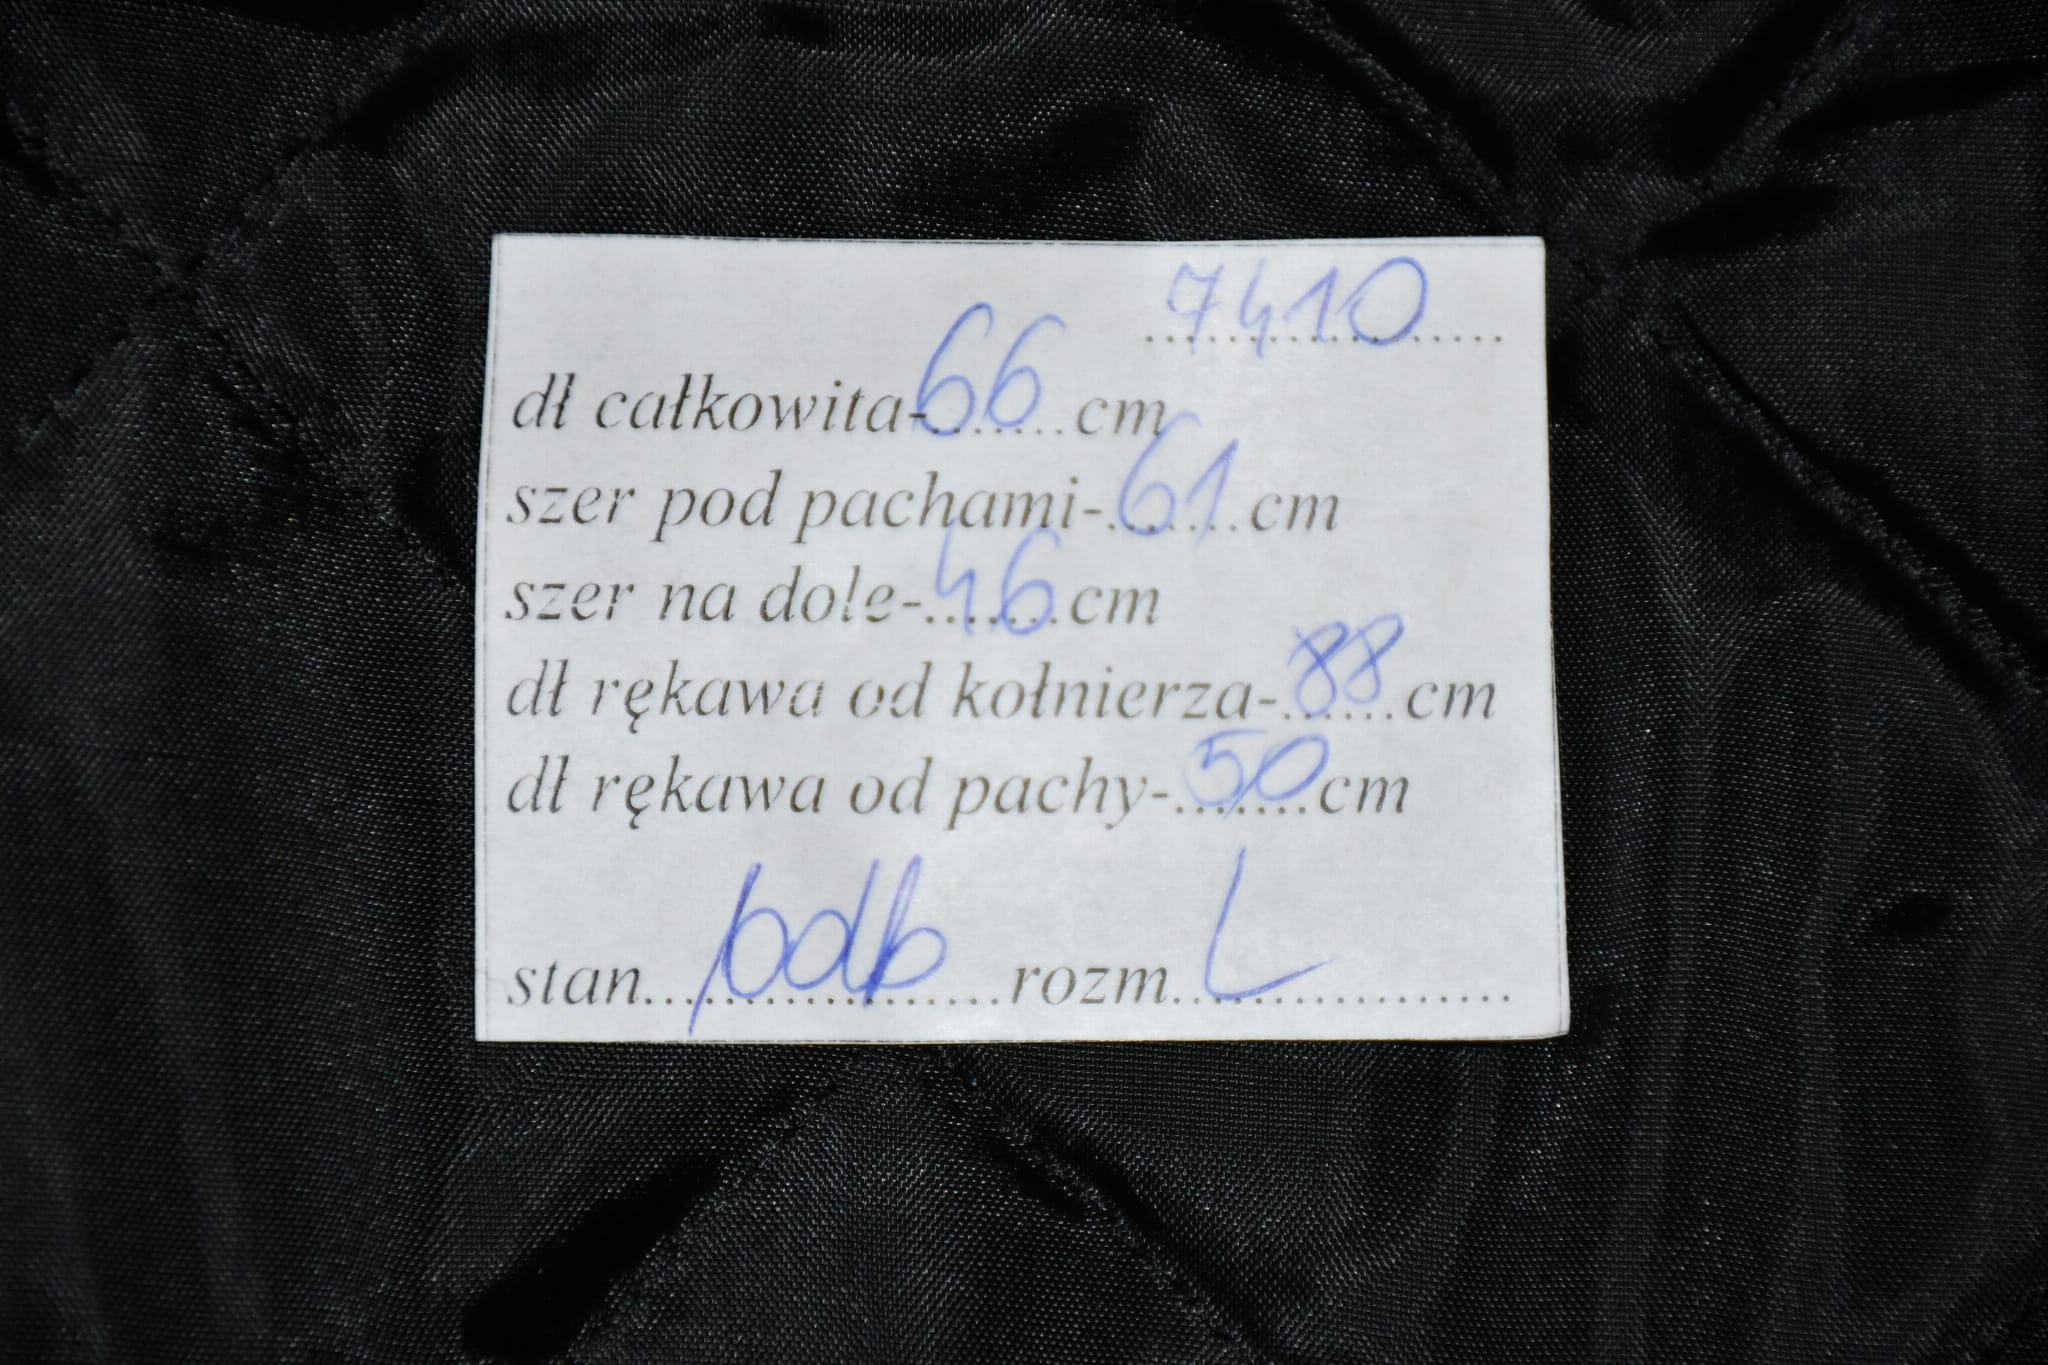 7410
dł całkowita-66.......cm
szer pod pachami-61.......cm
szer na dole-46.......cm
dł rękawa od kołnierza-88......cm
dł rękawa od pachy-50.......cm
stan...pdb...rozm...L...